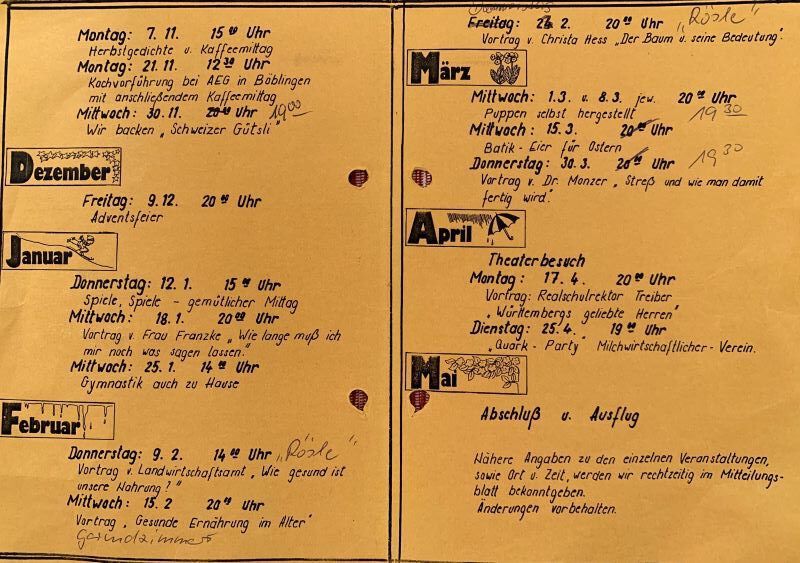 Montag: 7. 11. 15⁰⁰ Uhr
Herbstgedichte u. Kaffeemittag
Montag: 21. 11. 12³⁰ Uhr
Kochvorführung bei AEG in Böblingen
mit anschließendem Kaffeemittag
Mittwoch: 30. 11. 20⁰⁰ Uhr 19⁰⁰
Wir backen „Schweizer Gütsli"
Dezember
Freitag: 9. 12. 20⁰⁰ Uhr
Adventsfeier
Januar
Donnerstag: 12. 1. 15⁰⁰ Uhr
Spiele, Spiele - gemütlicher Mittag
Mittwoch: 18. 1. 20⁰⁰ Uhr
Vortrag v. Frau Franzke „Wie lange muß ich
mir noch was sagen lassen."
Mittwoch: 25. 1. 14⁰⁰ Uhr
Gymnastik auch zu Hause
Februar
Donnerstag: 9. 2. 14⁰⁰ Uhr „Rösle"
Vortrag v. Landwirtschaftsamt „Wie gesund ist
unsere Nahrung?"
Mittwoch: 15. 2 20⁰⁰ Uhr
Vortrag „Gesunde Ernährung im Alter"
Freitag: 2. 20⁰⁰ Uhr „Rösle"
Vortrag v. Christa Hess „Der Baum u. seine Bedeutung"
März
Mittwoch: 1. 3. u. 8. 3. jew. 20⁰⁰ Uhr
Puppen selbst hergestellt 19³⁰
Mittwoch: 15. 3. 20⁰⁰ Uhr
Batik - Eier für Ostern 19³⁰
Donnerstag: 30. 3. 20⁰⁰ Uhr
Vortrag v. Dr. Monzer „Streß und wie man damit
fertig wird."
April
Theaterbesuch
Montag: 17. 4. 20⁰⁰ Uhr
Vortrag: Realschulrektor Treiber
„Württembergs geliebte Herren"
Dienstag: 25. 4. 19⁰⁰ Uhr
„Quark - Party" Milchwirtschaftlicher - Verein.
Mai
Abschluß u. Ausflug
Nähere Angaben zu den einzelnen Veranstaltungen,
sowie Ort u. Zeit, werden wir rechtzeitig im Mitteilungs-
blatt bekanntgeben.
Änderungen vorbehalten.